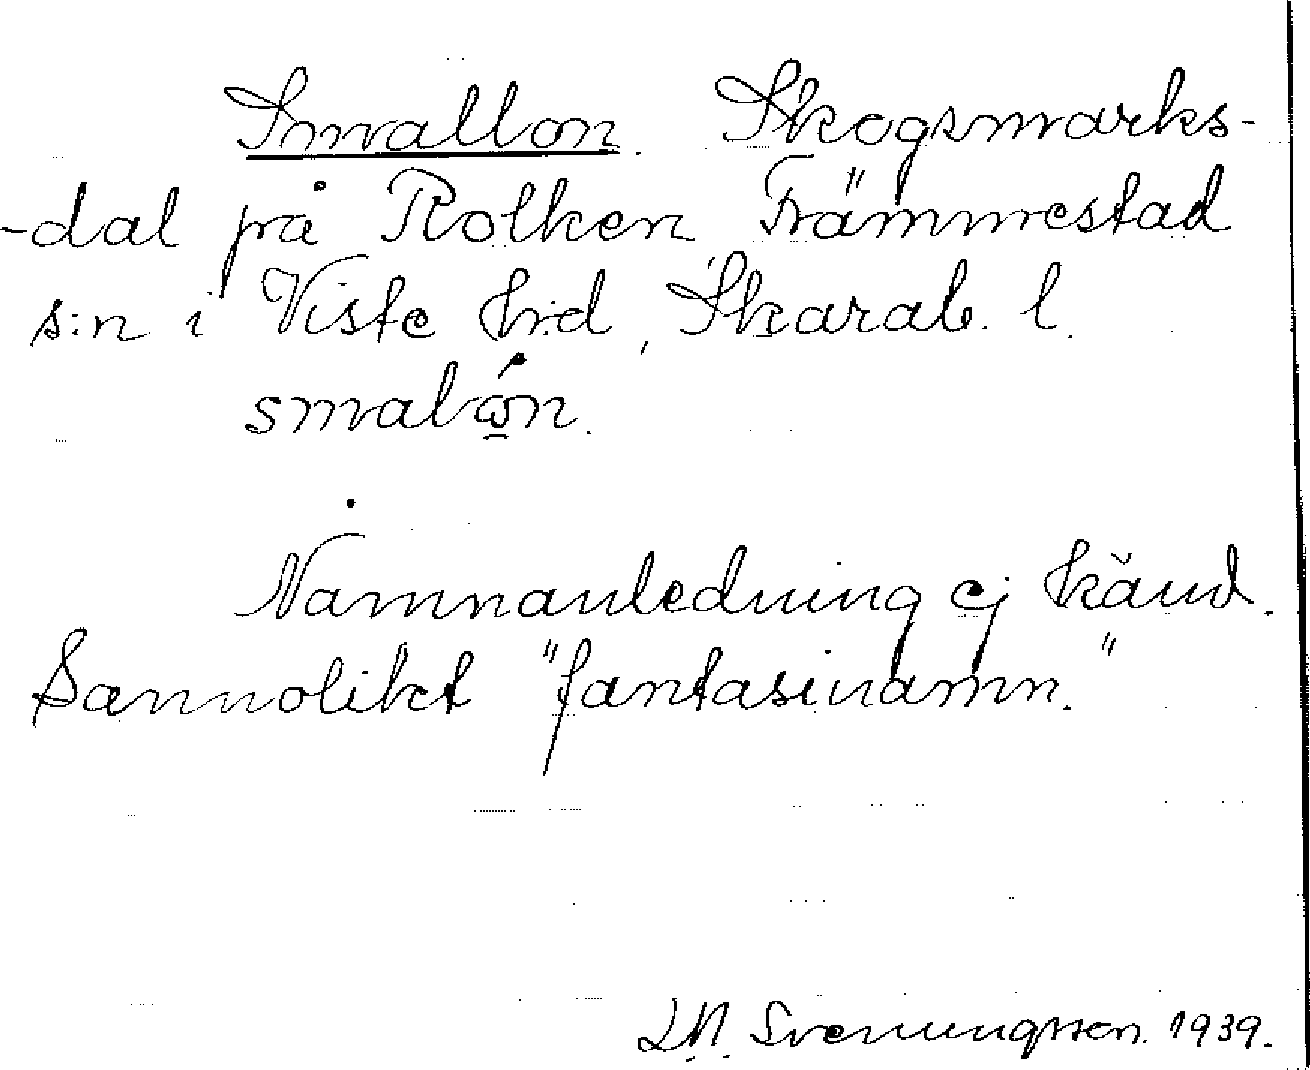 Smallon. Skogsmarks-
-dal på Rolken, Främmestad
s:n i Viste h:d, Skarab. l.
smalón.
Namnanledning ej känd.
Sannolikt "fantasinamn."
L.N. Svenungsson. 1939.